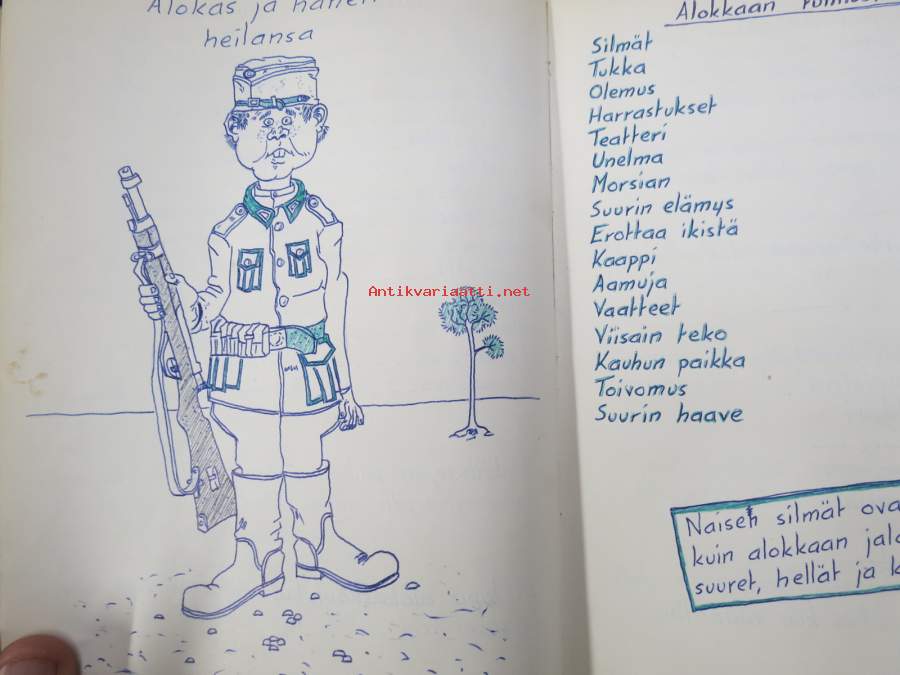 Alokas ja hänen
heilansa
Antikvariaatti.net
Alokkaan
Silmät
Tukka
Olemus
Harrastukset
Teatteri
Unelma
Morsian
Suurin elämys
Erottaa ikistä
Kaappi
Aamuja
Vaatteet
Viisain teko
Kauhun paikka
Toivomus
Suurin haave
Naisen silmät ova
kuin alokkaan jala
suuret, hellät ja k